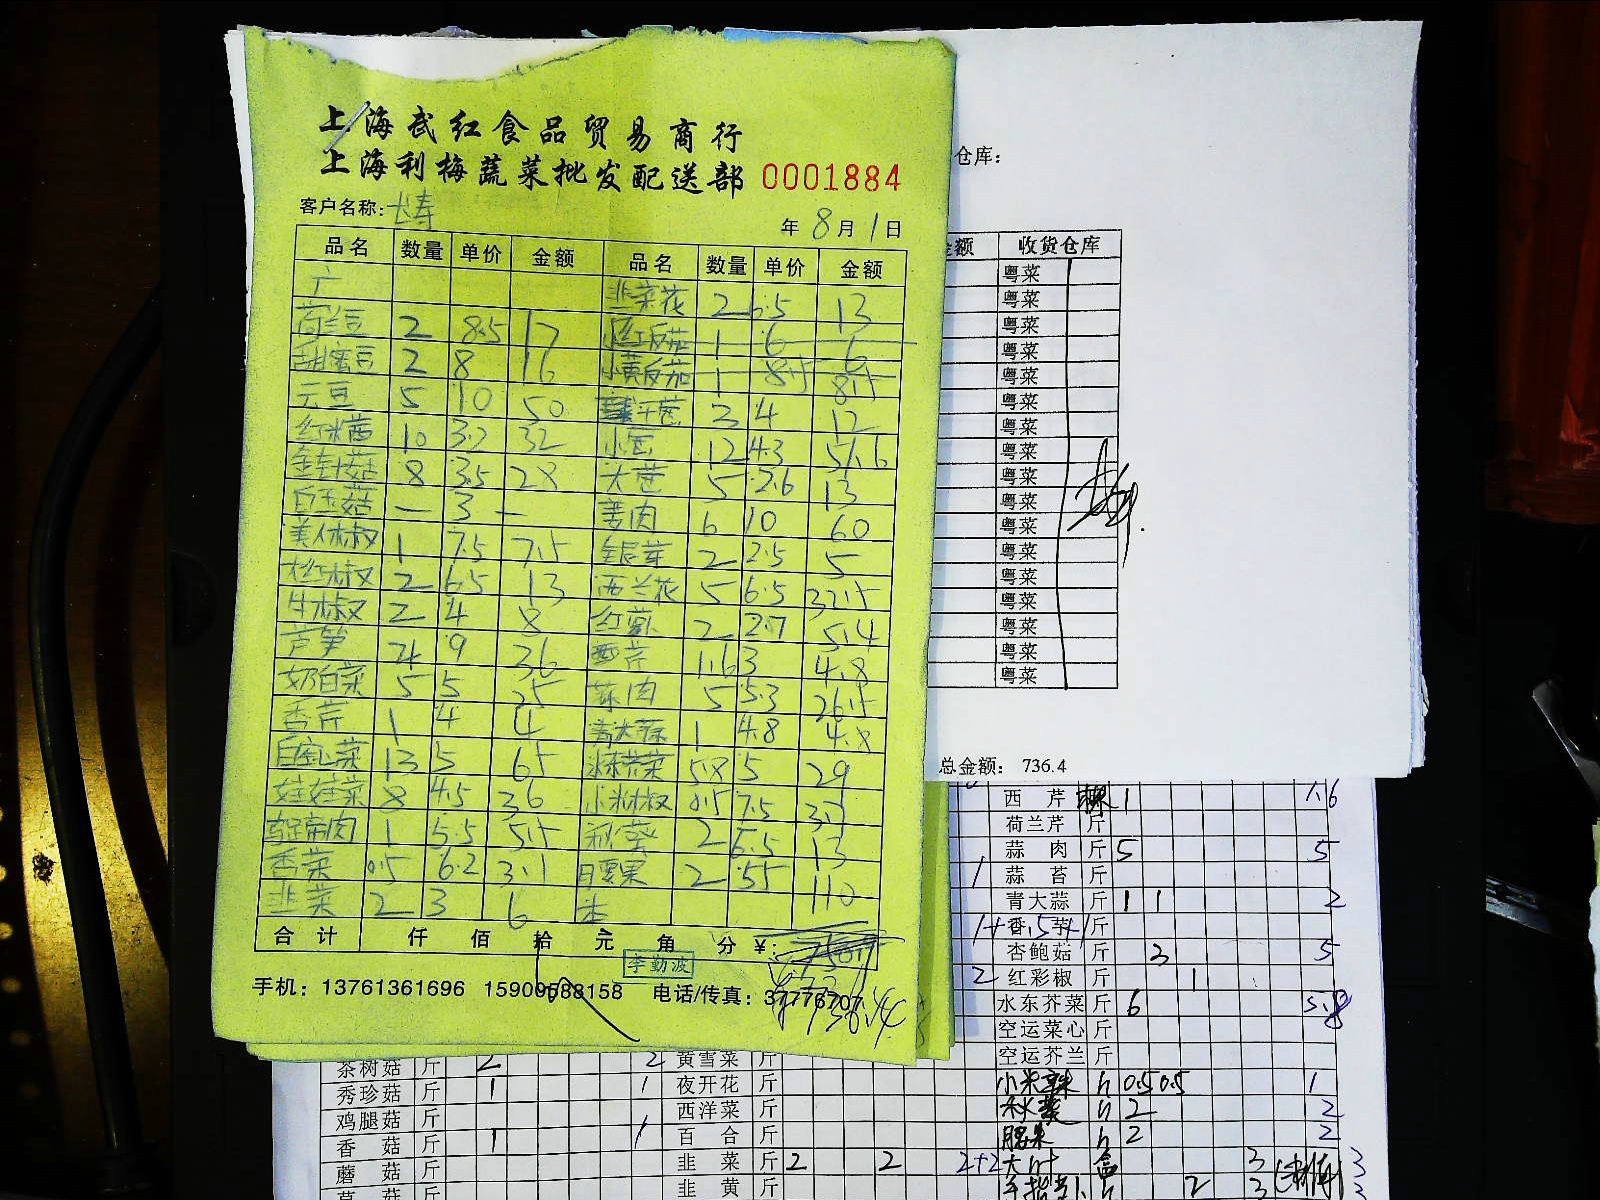 上海武红食品贸易商行
上海利梅蔬菜批发配送部 0001884
客户名称:
年 8 月 1 日
品名 数量 单价 金额 品名 数量 单价 金额
韭菜花 2 6.5 13
荷兰豆 2 8.5 17 小红反茄 1 6 6
甜蜜豆 2 8 16 小黄反茄 1 8.5 8.5
元豆 5 10 50 3 4 12
红米苋 10 3.2 32 小葱 12 4.3 51.6
金针菇 8 3.5 28 大葱 5 2.6 13
白玉菇 — 3 — 姜肉 6 10 60
美人椒 1 7.5 7.5 银芽 2 2.5 5
大红椒 2 6.5 13 西兰花 5 6.5 32.5
牛椒 2 4 8 红萝卜 2 2.7 5.4
芦笋 4 9 36 西芹 1.6 3 4.8
奶白菜 5 5 25 蒜肉 5 5.3 26.5
香芹 1 4 4 青大蒜 1 4.8 4.8
13 5 65 水东芥菜 5.8 5 29
娃娃菜 8 4.5 36 小米椒 0.5 7.5 3.7
1 5.5 5.5 秋葵 2 6.5 13
香菜 0.5 6.2 3.1 腰果 2 55 110
韭菜 2 3 6
合计 仟 佰 拾 元 角 分 ¥:
736.4
李勤波
手机: 13761361696 15900588158 电话/传真: 37776707
仓库:
金额 收货仓库
粤菜
粤菜
粤菜
粤菜
粤菜
粤菜
粤菜
粤菜
粤菜
粤菜
粤菜
粤菜
粤菜
粤菜
粤菜
粤菜
粤菜
总金额: 736.4
西芹 1 1.6
荷兰芹 斤
蒜肉 斤 5 5
1 蒜苔 斤
青大蒜 斤 1 1 2
香芋 斤
杏鲍菇 斤 3 5
2 红彩椒 斤 1
水东芥菜 斤 6 5.8
空运菜心 斤
空运芥兰 斤
小米辣 斤 0.5 0.5 1
秋葵 斤 2 2
腰果 斤 2 2
大叶 盒 3 3
2 3 3
茶树菇 斤 2 2 黄雪菜 斤
秀珍菇 斤 1 1 夜开花 斤
鸡腿菇 斤 西洋菜 斤
香菇 斤 1 1 百合 斤
蘑菇 斤 韭菜 斤 2 2 2+2
草菇 斤 韭黄 斤